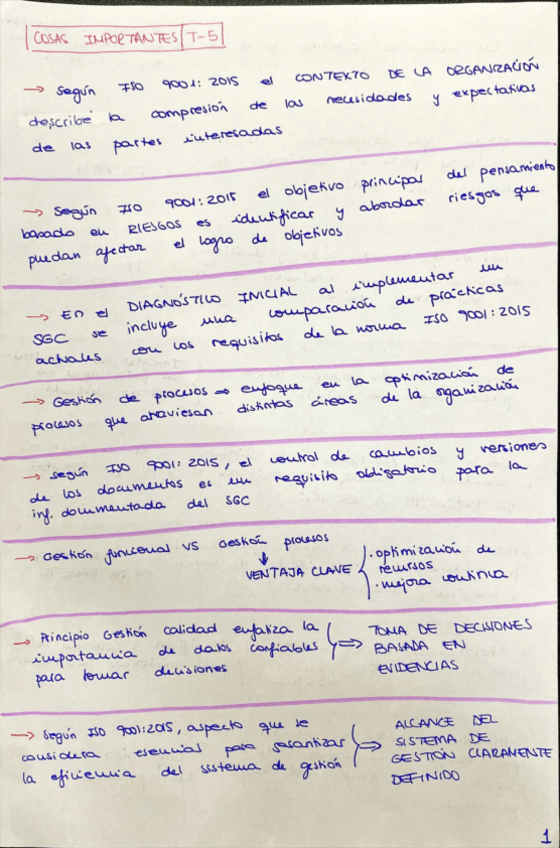 COSAS IMPORTANTES T-5
→ Según ISO 9001:2015 el CONTEXTO DE LA ORGANIZACIÓN
describe la compresión de las necesidades y expectativas
de las partes interesadas
→ Según ISO 9001:2015 el objetivo principal del pensamiento
basado en RIESGOS es identificar y abordar riesgos que
puedan afectar el logro de objetivos
→ En el DIAGNÓSTICO INICIAL al implementar un
SGC se incluye una comparación de prácticas
actuales con los requisitos de la norma ISO 9001:2015
→ Gestión de procesos ⇒ enfoque en la optimización de
procesos que atraviesan distintas áreas de la organización
→ Según ISO 9001:2015, el control de cambios y versiones
de los documentos es un requisito obligatorio para la
inf. documentada del SGC
→ Gestión funcional VS Gestión procesos
↓
VENTAJA CLAVE
· optimización de
recursos
· mejora continua
→ Principio Gestión calidad enfatiza la
importancia de datos confiables
para tomar decisiones
⇒ TOMA DE DECISIONES
BASADA EN
EVIDENCIAS
→ Según ISO 9001:2015, aspecto que se
considera esencial para garantizar
la eficiencia del sistema de gestión
⇒ ALCANCE DEL
SISTEMA DE
GESTIÓN CLARAMENTE
DEFINIDO
1